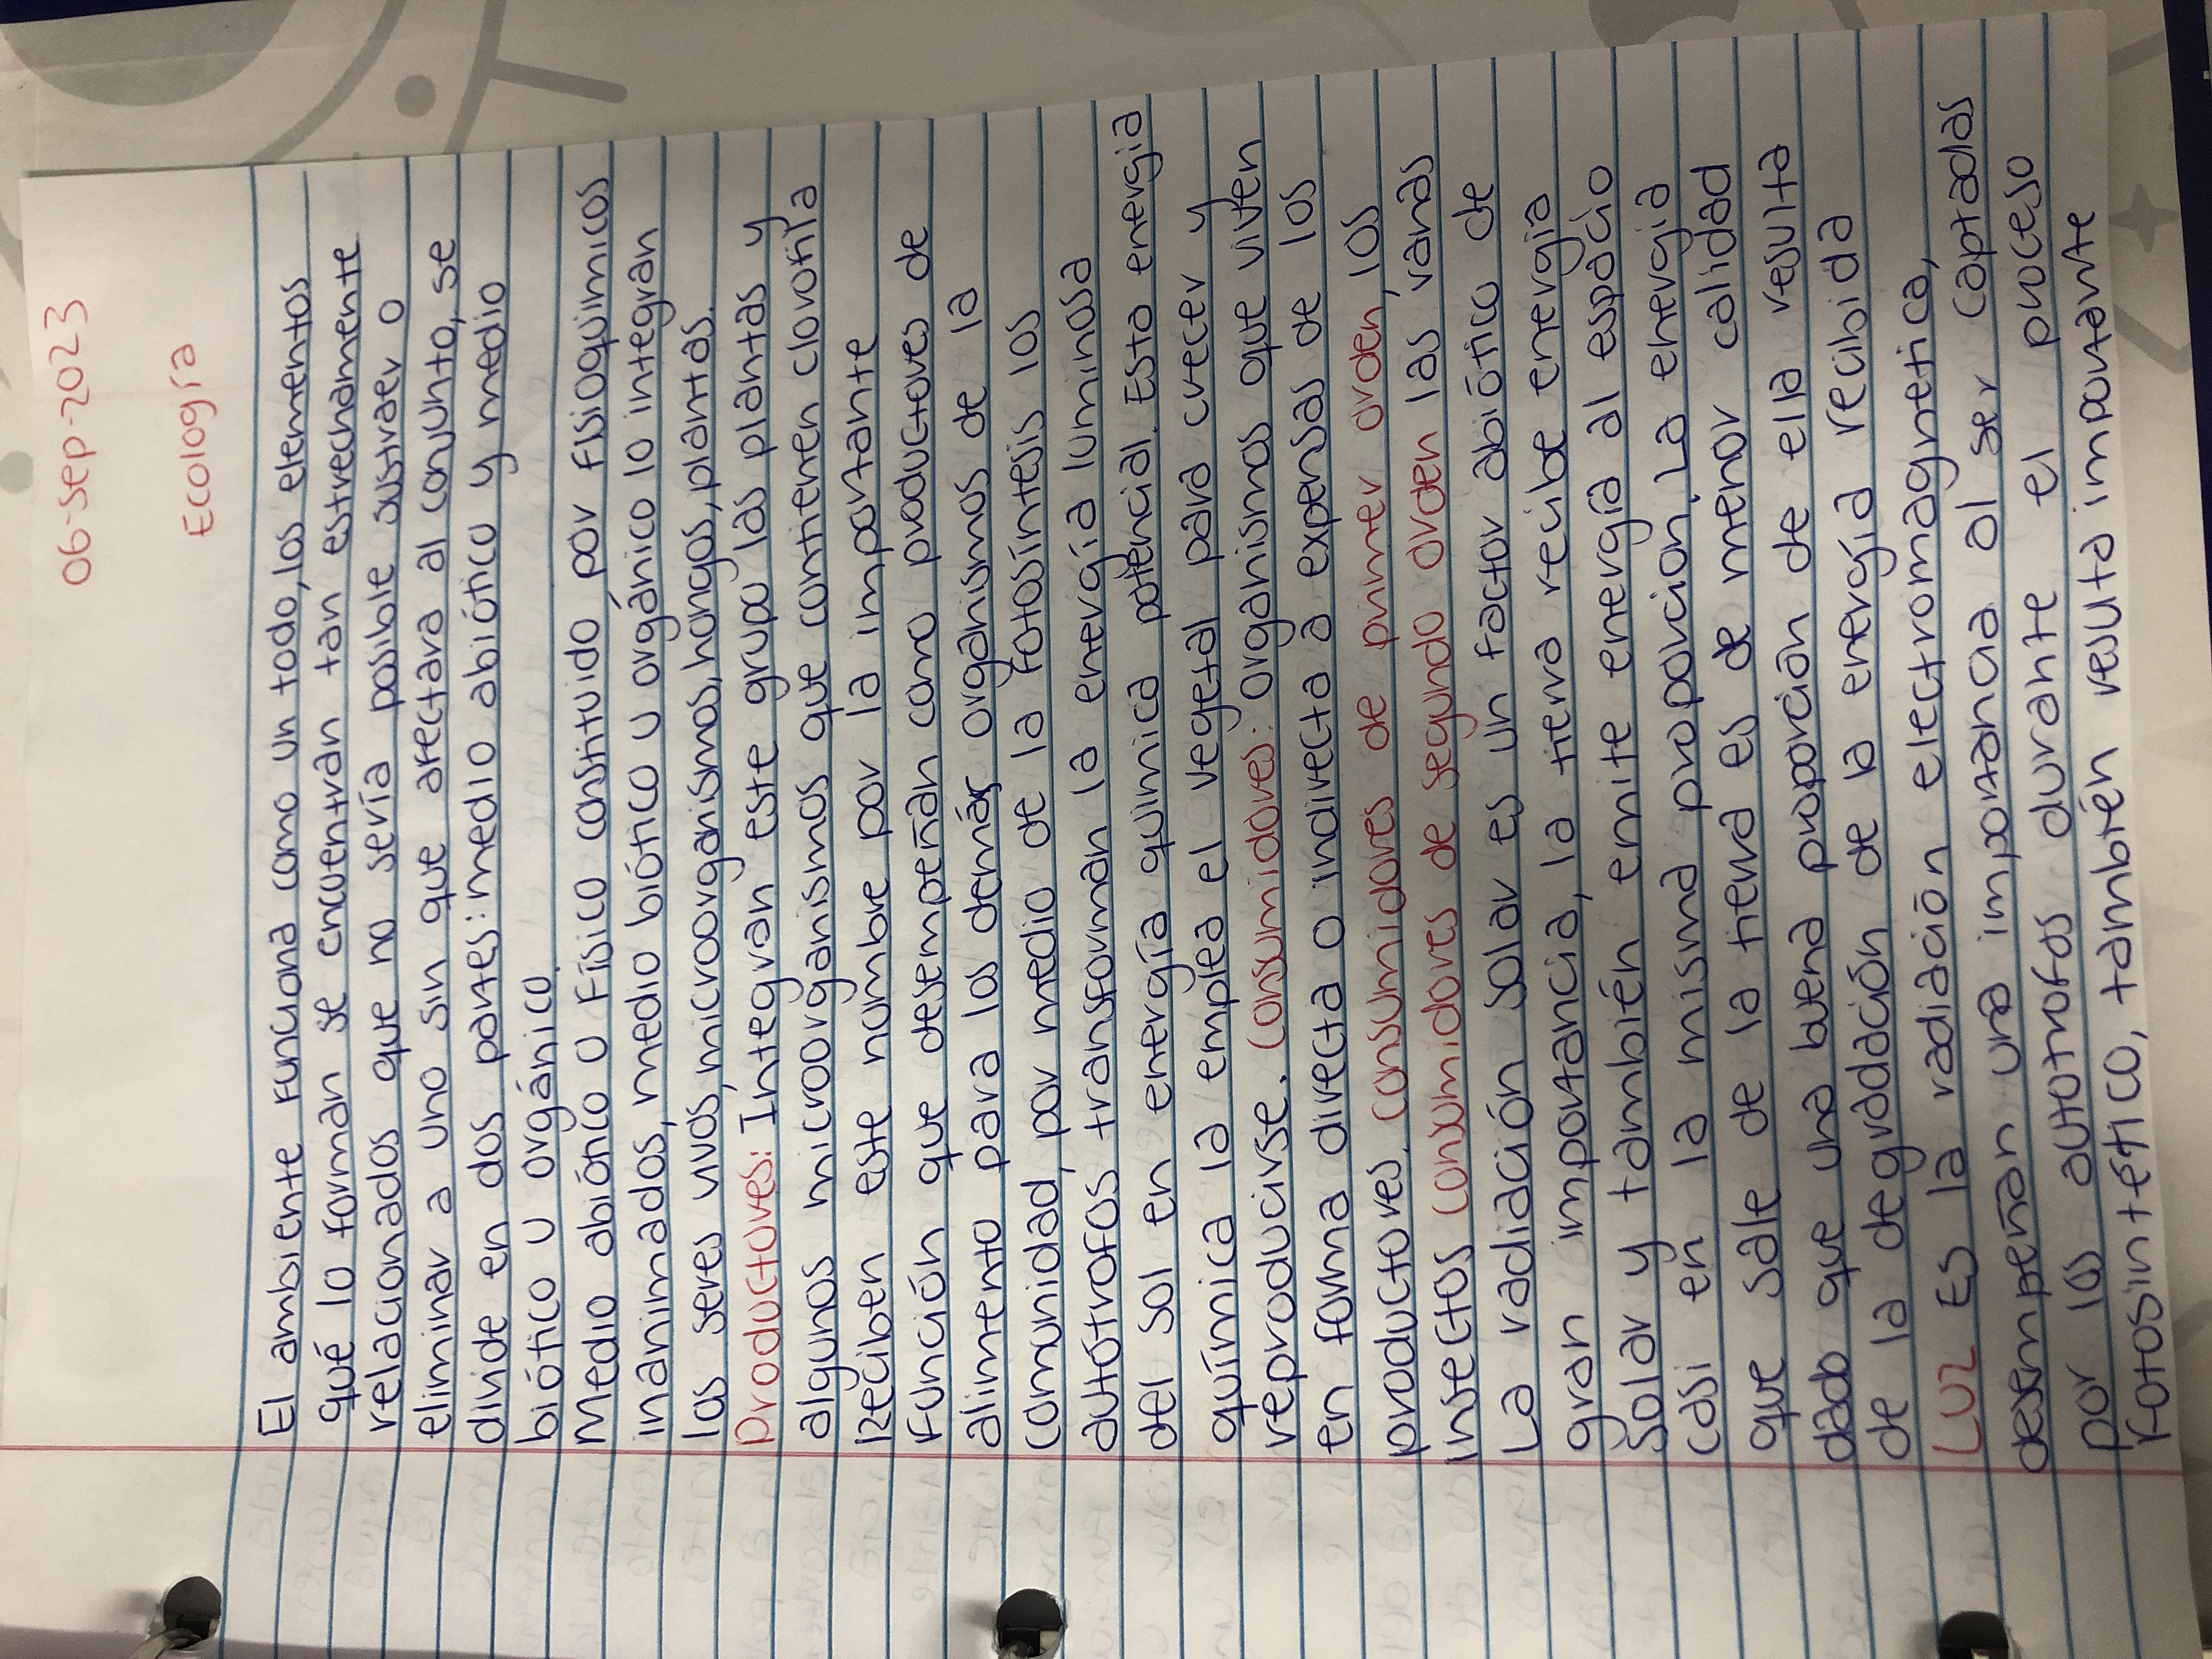 06-sep-2023
Ecología
El ambiente funciona como un todo, los elementos
qué lo forman se encuentran tan estrechamente
relacionados que no sería posible sustraer o
eliminar a uno sin que afectara al conjunto, se
divide en dos partes: medio abiótico y medio
biótico u orgánico.
Medio abiótico o físico constituido por fisioquimicos
inanimados, medio biótico u orgánico lo integran
los seres vivos, microorganismos, hongos, plantas.
Productores: Integran este grupo las plantas y
algunos microorganismos que contienen clorofila
Reciben este nombre por la importante
Función que desempeñan como productores de
alimento para los demás organismos de la
comunidad, por medio de la fotosíntesis los
autótrofos transforman la energía luminosa
del sol en energía quimica potencial. Esta energia
química la emplea el vegetal para crecer y
reproducirse. Consumidores: Organismos que viven
en forma directa o indirecta a expensas de los
productores. consumidores de primer orden, los
insectos consumidores de segundo orden las ranas
La radiación solar es un factor abiótico de
gran importancia, la tierra recibe energia
Solar y también emite energía al espacio
casi en la misma proporcion. La energia
que sale de la tierra es de menor calidad
dado que una buena proporcion de ella resulta
de la degradación de la energía recibida
LUZ Es la radiación electromagnetica,
desempeñan una importancia al ser captadas
por los autotrofos durante el proceso
Fotosintético, también resulta importante